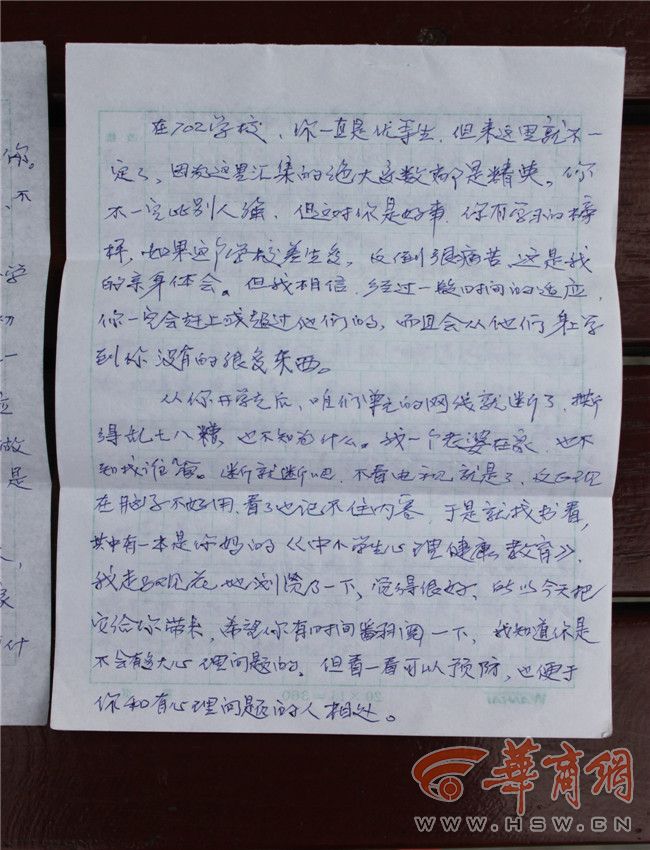 你。
不
学
切
一
应
做
是
家
什
在702学校，你一直是优等生，但来这里就不一
定了，因为这里汇集的绝大多数都是精英。你
不一定比别人强，但这对你是好事，你有学习的榜
样，如果这个学校差生多，反倒很痛苦，这是我
的亲身体会。但我相信，经过一段时间的适应，
你一定会赶上或超过他们的，而且会从他们身上学
到你没有的很多东西。
从你开学走后，咱们单元的网线就断了，
得乱七八糟，也不知为什么。我一个老婆在家，也不
知找谁。断就断吧，不看电视就是了，反正现
在脑子不好用，看了也记不住内容，于是就找书看，
其中有一本是你妈的《中小学生心理健康教育》，
我走马观花地浏览了一下，觉得很好，所以今天把
它给你带来，希望你有时间翻阅一下，我知道你是
不会有多大心理问题的，但看一看可以预防，也便于
你和有心理问题的人相处。
华商网
WWW.HSW.CN